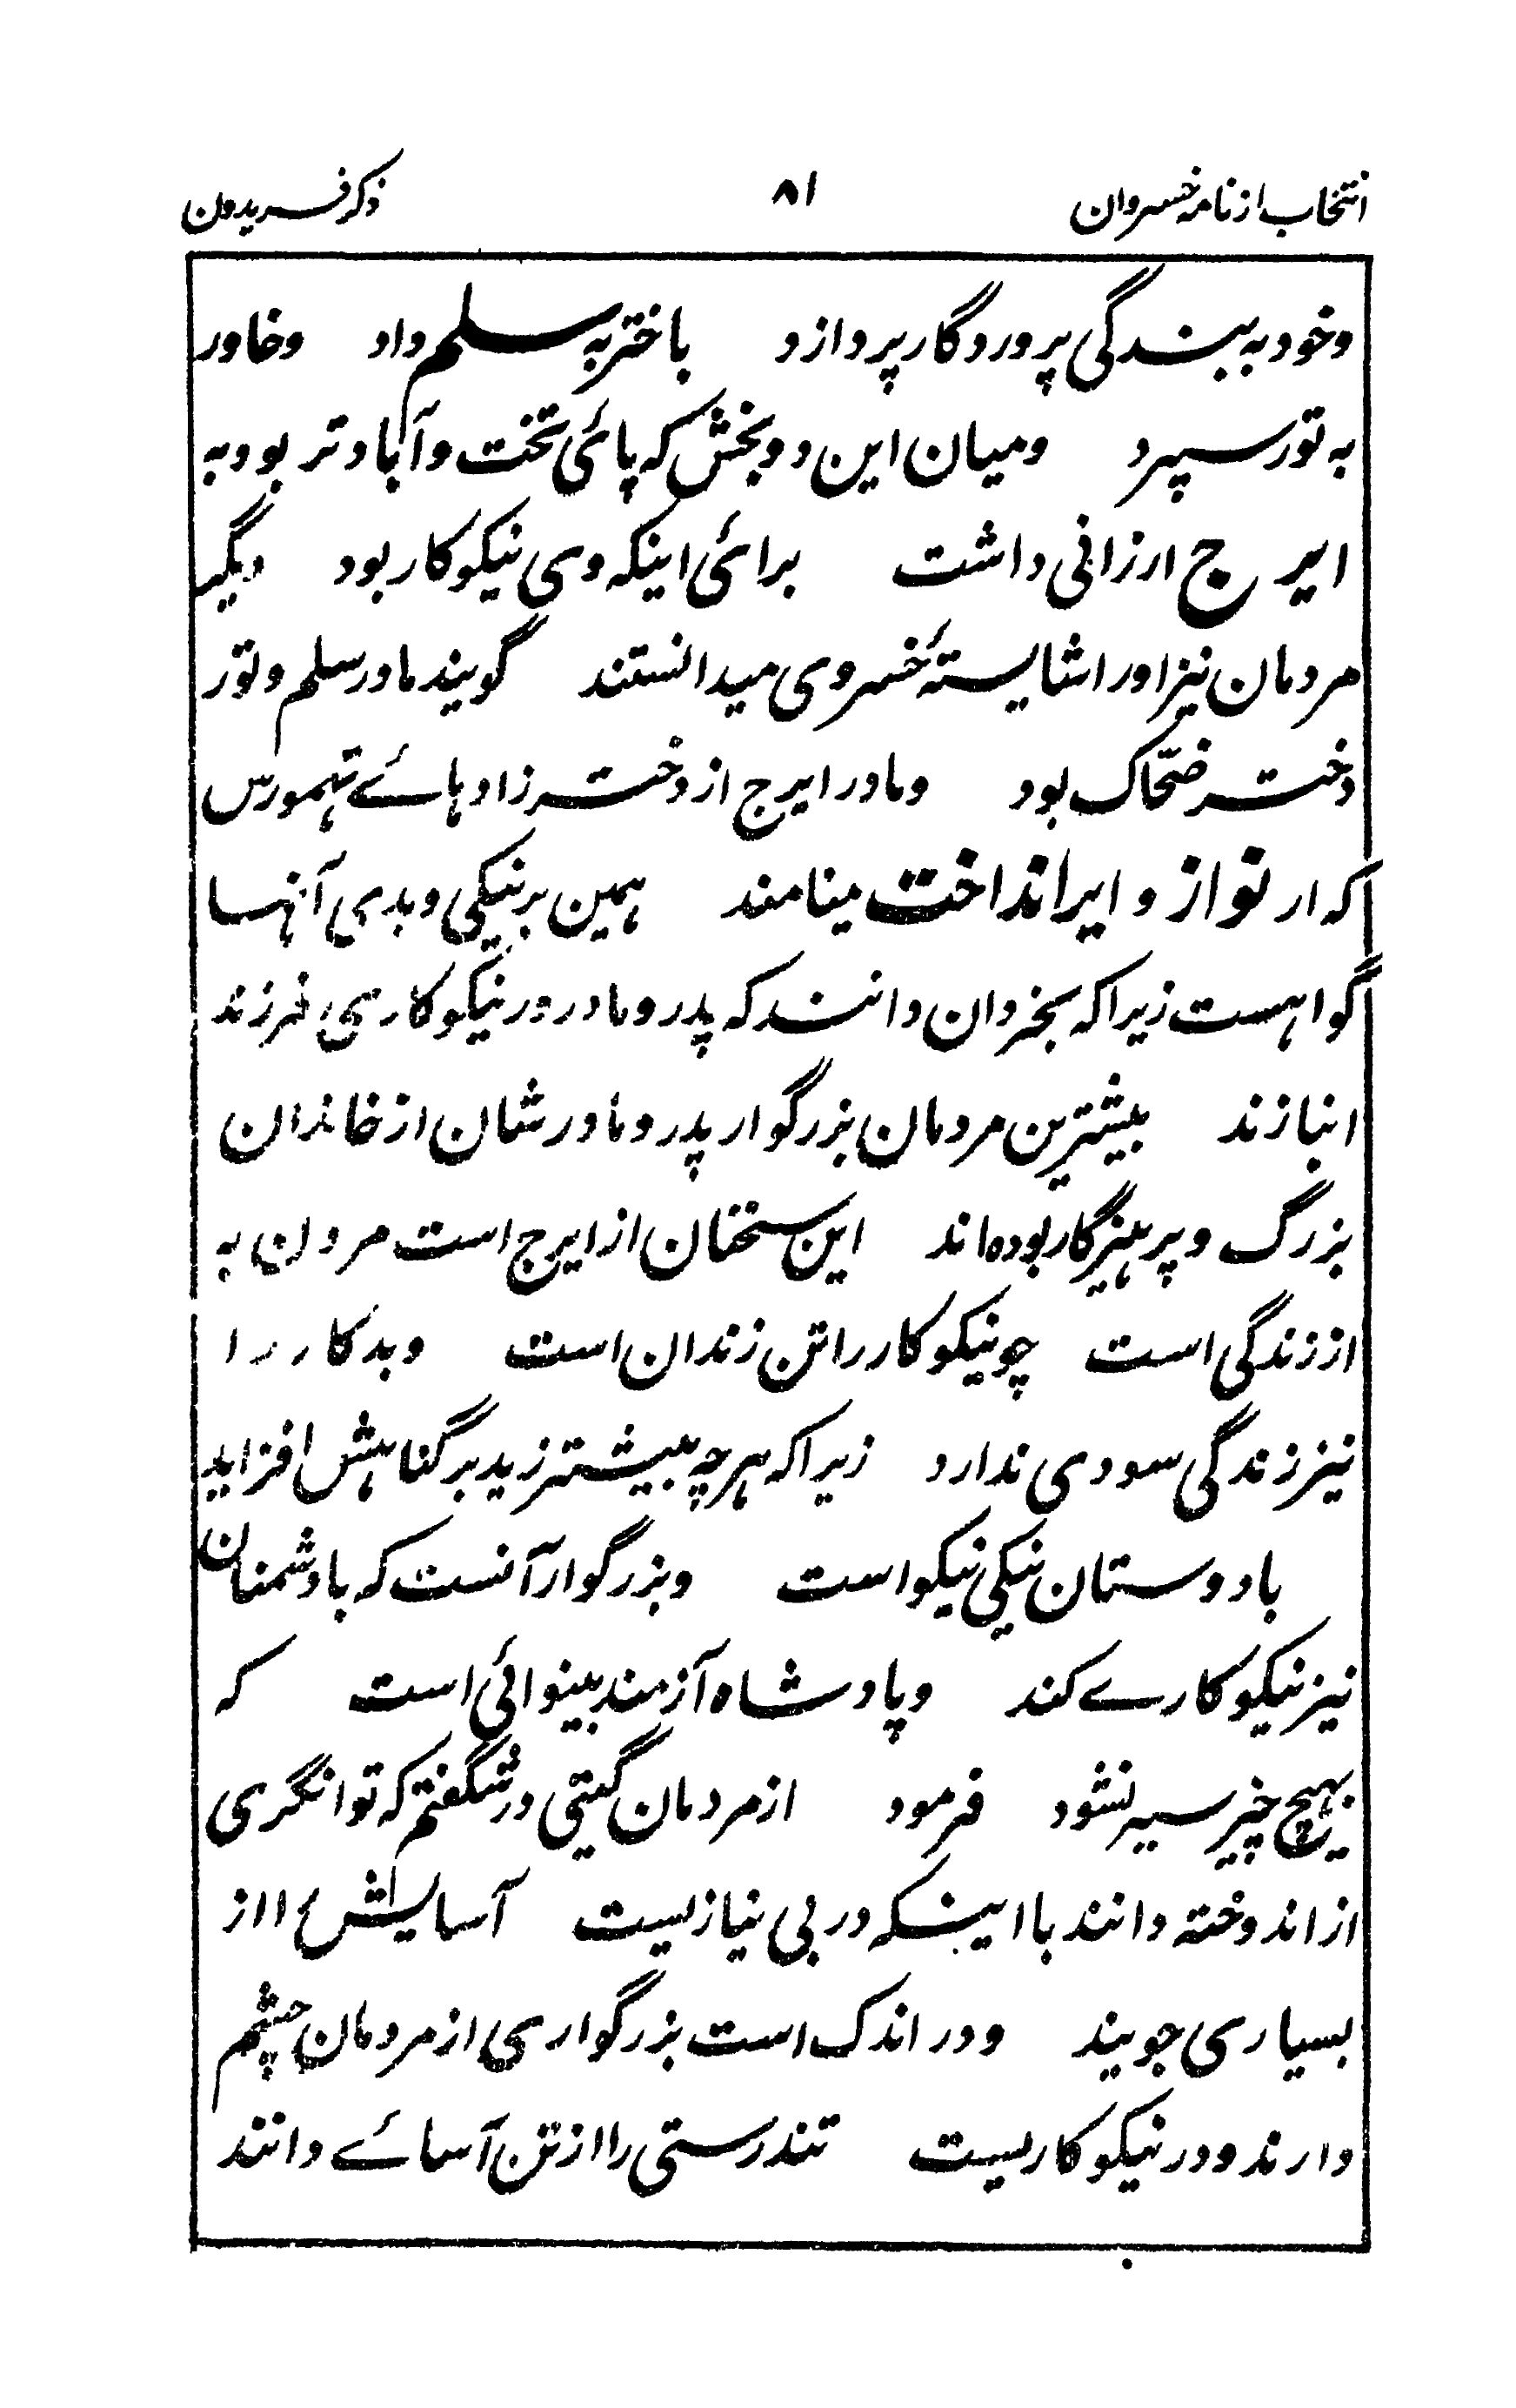 انتخاب از نامہ خسروان ۸۱ ذکر فریدون
وخود بہ بندگی پروردگار پردازد باختر بہ سلم داد وخاور
بہ تور سپرد ومیان این دو بخش کہ پائی تخت وآبادتر بود بہ
ایرج ارزانی داشت برائی اینکہ وی نیکوکار بود دیگر
مردمان نیز اورا شایستۂ خسروی میدانستند گویند مادر سلم وتور
دختر ضحّاک بود ومادر ایرج از دختر زادہائے تہمورس
کہ ار نواز و ایراندخت مینامند ہمین بر نیکی وبدی آنہا
گواہست زیراکہ بخردان دانند کہ پدر ومادر در نیکوکاری فرزند
انبازند بیشترین مردمان بزرگوار پدر ومادرشان از خاندان
بزرگ وپرہیزگار بودہ اند این سخنان از ایرج است مردن بہ
از زندگی است چو نیکوکار را تن زندان است وبدکار را
نیز زندگی سودی ندارد زیراکہ ہرچہ بیشتر زید بر گناہش افزاید
با دوستان نیکی نیکو است وبزرگوار آنست کہ با دشمنان
نیز نیکوکارے کند وپادشاہ آزمند بینوائی است کہ
بہیچ چیز سیر نشود فرمود از مردمان گیتی در شگفتم کہ توانگری
از اندوختہ دانند با اینکہ در بی نیازیست آسایش را از
بسیاری جویند ودر اندک است بزرگواری از مردمان چشم
دارند ودر نیکوکاریست تندرستی را از تن آسائے دانند